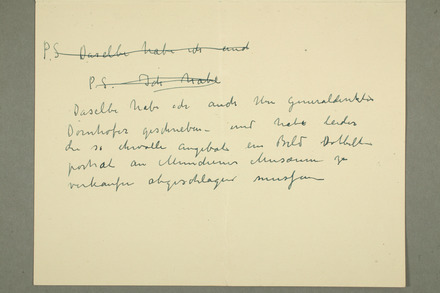 P.S. Daselbe habe ich auch
P.S. Ich habe
Daselbe habe ich auch Hrn Generaldirektor
Dörnhofer geschrieben und habe leider
die so ehrvolle Angebote ein Bild
portrait an Münchener Museum zu
verkaufen abgeschlagen müssen